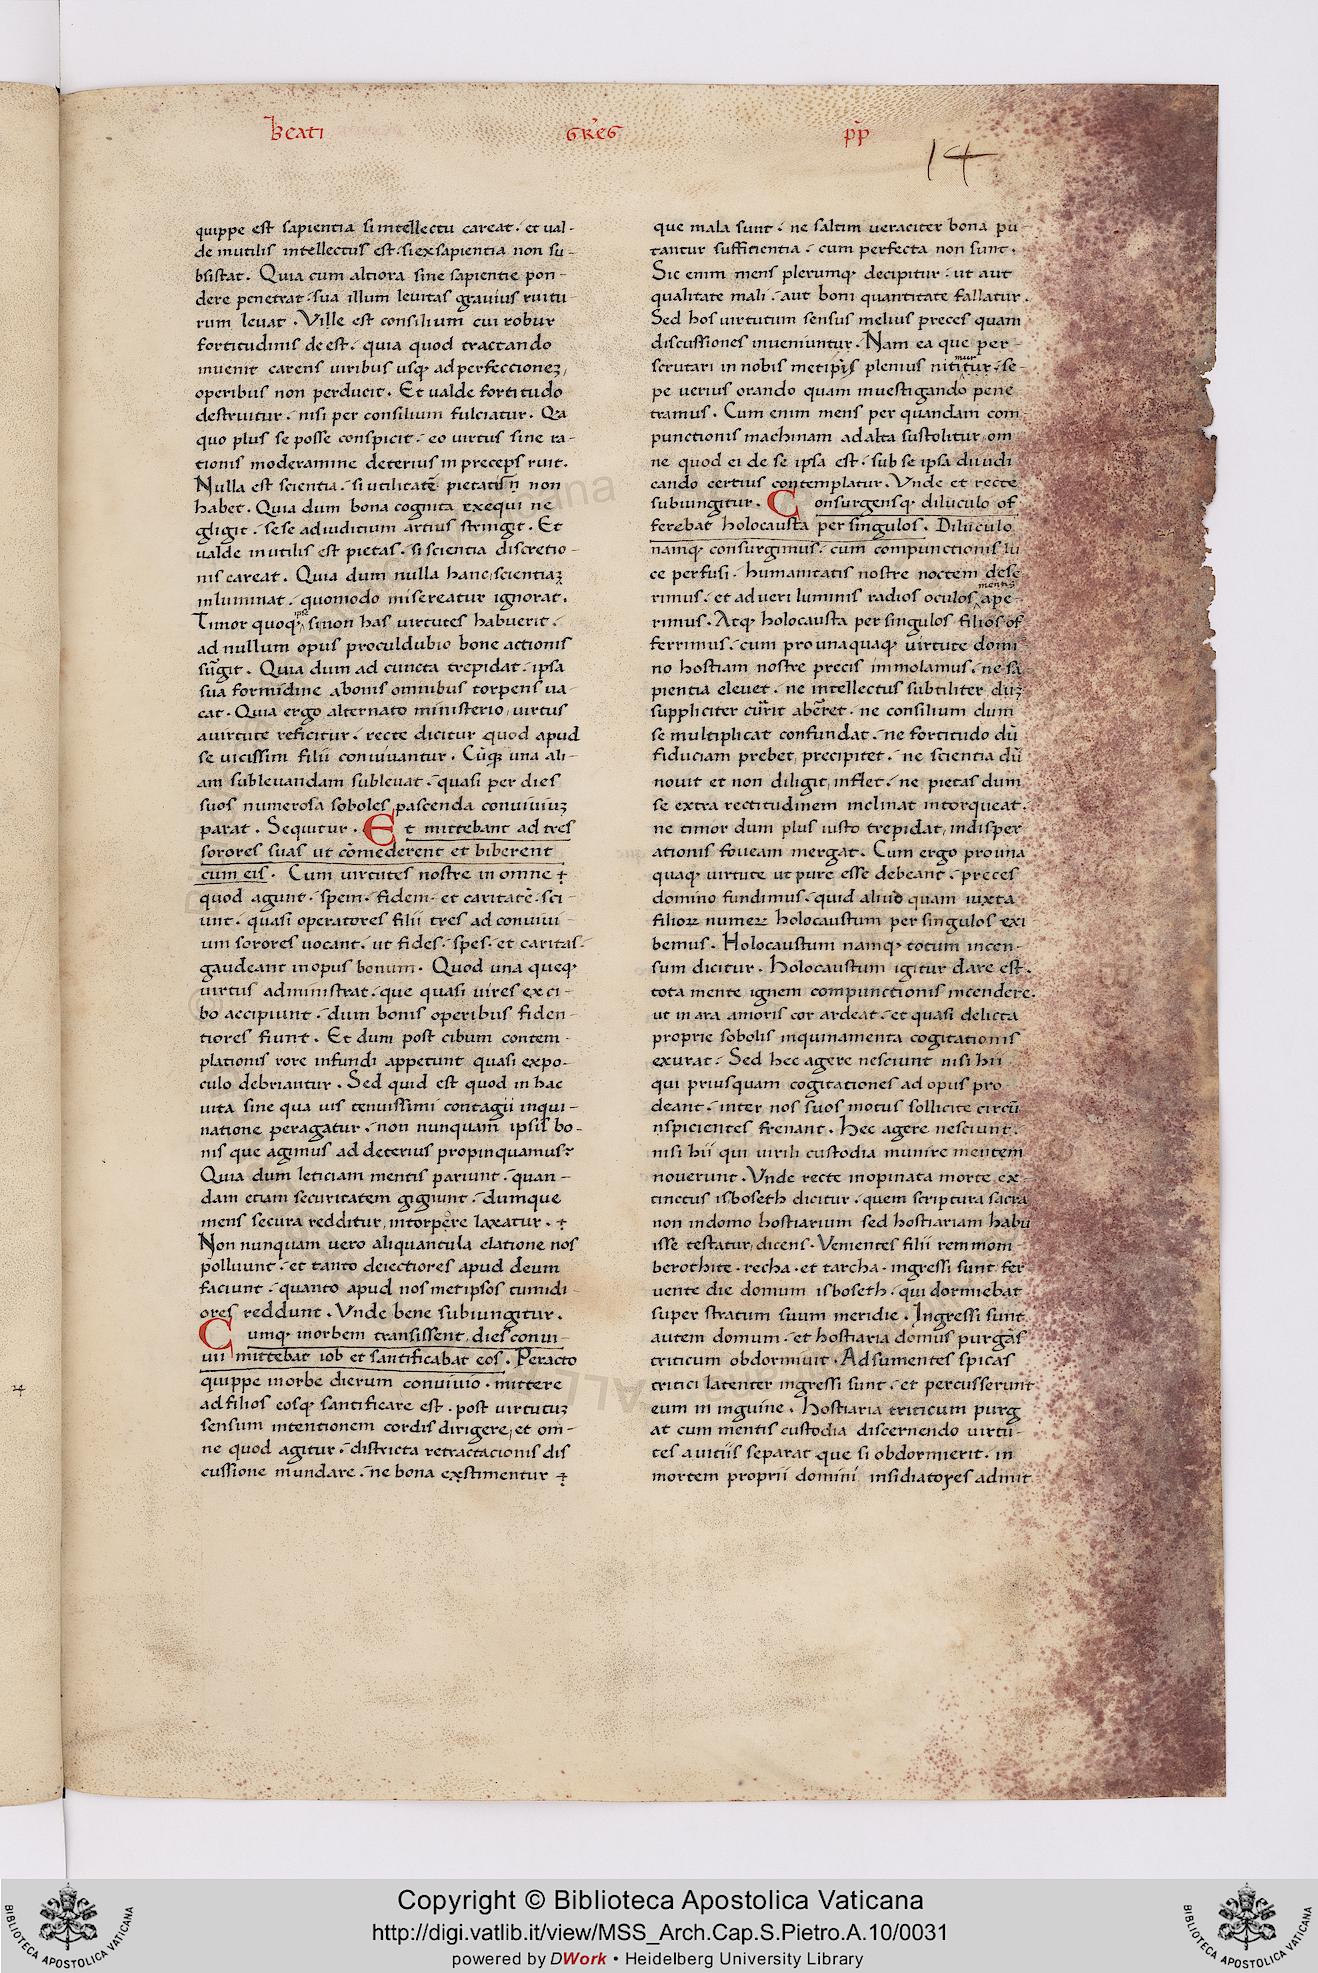 Beati GREG pp
14
quippe est sapientia si intellectu careat. et val-
de inutilis intellectus est. si ex sapientia non su-
bsistat. Quia cum altiora sine sapientie pon-
dere penetrat. sua illum levitas gravius ruitu-
rum levat. Ville est consilium cui robur
fortitudinis de est. quia quod tractando
invenit carens viribus usq; ad perfeccionez,
operibus non perducit. Et valde fortitudo
destruitur. nisi per consilium fulciatur. Qa
quo plus se posse conspicit. eo virtus sine ra-
tionis moderamine deterius in preceps ruit.
Nulla est scientia. si utilitatē pietatis ñ non
habet. Quia dum bona cognita exequi ne
gligit. sese ad iuditium artius stringit. Et
valde inutilis est pietas. si scientia discretio-
nis careat. Quia dum nulla hanc scientiaz
inluminat. quomodo misereatur ignorat.
Timor quoq; ipse si non has virtutes habuerit.
ad nullum opus proculdubio bone actionis
surgit. Quia dum ad cuncta trepidat. ipsa
sua formidine a bonis omnibus torpens va-
cat. Quia ergo alternato ministerio, virtus
a virtute reficitur. recte dicitur quod apud
se vicissim filii convivantur. Cūq; una ali-
am sublevandam sublevat. quasi per dies
suos numerosa soboles pascenda conviviuz
parat. Sequitur. Et mittebant ad tres
sorores suas ut cōmederent et biberent
cum eis. Cum virtutes nostre in omne
quod agunt. spem. fidem. et caritatē. sci-
unt. quasi operatores filii tres ad convivi-
um sorores vocant. ut fides. spes. et caritas.
gaudeant in opus bonum. Quod una queq;
virtus administrat. que quasi vires ex ci-
bo accipiunt. dum bonis operibus fiden-
tiores fiunt. Et dum post cibum contem-
plationis rore infundi appetunt quasi expo-
culo debriantur. Sed quid est quod in hac
vita sine qua vis tenuissimi contagii inqui-
natione peragatur. non nunquam ipsis bo-
nis que agimus ad deterius propinquamus?
Quia dum leticiam mentis pariunt. quan-
dam etiam securitatem gignunt. dumque
mens secura redditur, in torpore laxatur.
Non nunquam vero aliquantula elatione nos
polluunt. et tanto deiectiores apud deum
faciunt. quanto apud nosmetipsos tumidi-
ores reddunt. Unde bene subiungitur.
Cumq; in orbem transissent, dies convi-
vii mittebat iob et santificabat eos. Peracto
quippe in orbe dierum convivio. mittere
ad filios eosq; santificare est. post virtutuz
sensum intentionem cordis dirigere, et om-
ne quod agitur. districta retractacionis dis
cussione mundare. ne bona exstimentur
que mala sunt. ne saltim veraciter bona pu
tantur sufficientia. cum perfecta non sunt.
Sic enim mens plerumq; decipitur. ut aut
qualitate mali. aut boni quantitate fallatur.
Sed hos virtutum sensus melius preces quam
discussiones inveniuntur. Nam ea que per-
scrutari in nobis metipsis plenius nititur mur. se-
pe verius orando quam investigando pene
tramus. Cum enim mens per quandam com
punctionis machinam ad alta sustolitur, om
ne quod ei de se ipsa est. sub se ipsa diiudi
cando certius contemplatur. Unde et recte
subiungitur. Consurgensq; diluculo of
ferebat holocausta per singulos. Diluculo
namq; consurgimus. cum compunctionis lu
ce perfusi. humanitatis nostre noctem dese
rimus. et ad veri luminis radios oculos mentis ape-
rimus. Atq; holocausta per singulos filios of
ferrimus. cum pro unaquaq; virtute domi-
no hostiam nostre precis immolamus. ne sa
pientia elevet. ne intellectus subtiliter duz
suppliciter currit aberret. ne consilium dum
se multiplicat confundat. ne fortitudo dū
fiduciam prebet, precipitet. ne scientia dū
novit et non diligit, inflet. ne pietas dum
se extra rectitudinem inclinat intorqueat.
ne timor dum plus iusto trepidat, in disper
ationis foveam mergat. Cum ergo pro una
quaq; virtute ut pure esse debeant. preces
domino fundimus. quid aliud quam iuxta
filioꝝ numeꝝ holocaustum per singulos exi
bemus. Holocaustum namq; totum incen-
sum dicitur. Holocaustum igitur dare est.
tota mente ignem compunctionis incendere.
ut in ara amoris cor ardeat. et quasi delicta
proprie sobolis inquinamenta cogitationis
exurat. Sed hec agere nesciunt nisi hii
qui priusquam cogitationes ad opus pro
deant. inter nos suos motus sollicite circū
nspicientes frenant. Hec agere nesciunt.
nisi hii qui virili custodia munire mentem
noverunt. Unde recte inopinata morte ex-
tinctus isboseth dicitur. quem scriptura sacra
non in domo hostiarium sed hostiariam habu
isse testatur, dicens. Venientes filii remmom-
berothite. recha. et tarcha. ingressi sunt fer
vente die domum isboseth. qui dormiebat
super stratum suum meridie. Ingressi sunt
autem domum. et hostiaria domus purgās
triticum obdormivit. Adsumentes spicas
tritici latenter ingressi sunt. et percusserunt
eum in inguine. Hostiaria triticum purg
at cum mentis custodia discernendo virtu-
tes a vitiis separat que si obdormierit. in
mortem proprii domini insidiatores admit
Copyright © Biblioteca Apostolica Vaticana
http://digi.vatlib.it/view/MSS_Arch.Cap.S.Pietro.A.10/0031
powered by DWork • Heidelberg University Library
BIBLIOTECA APOSTOLICA VATICANA
BIBLIOTECA APOSTOLICA VATICANA